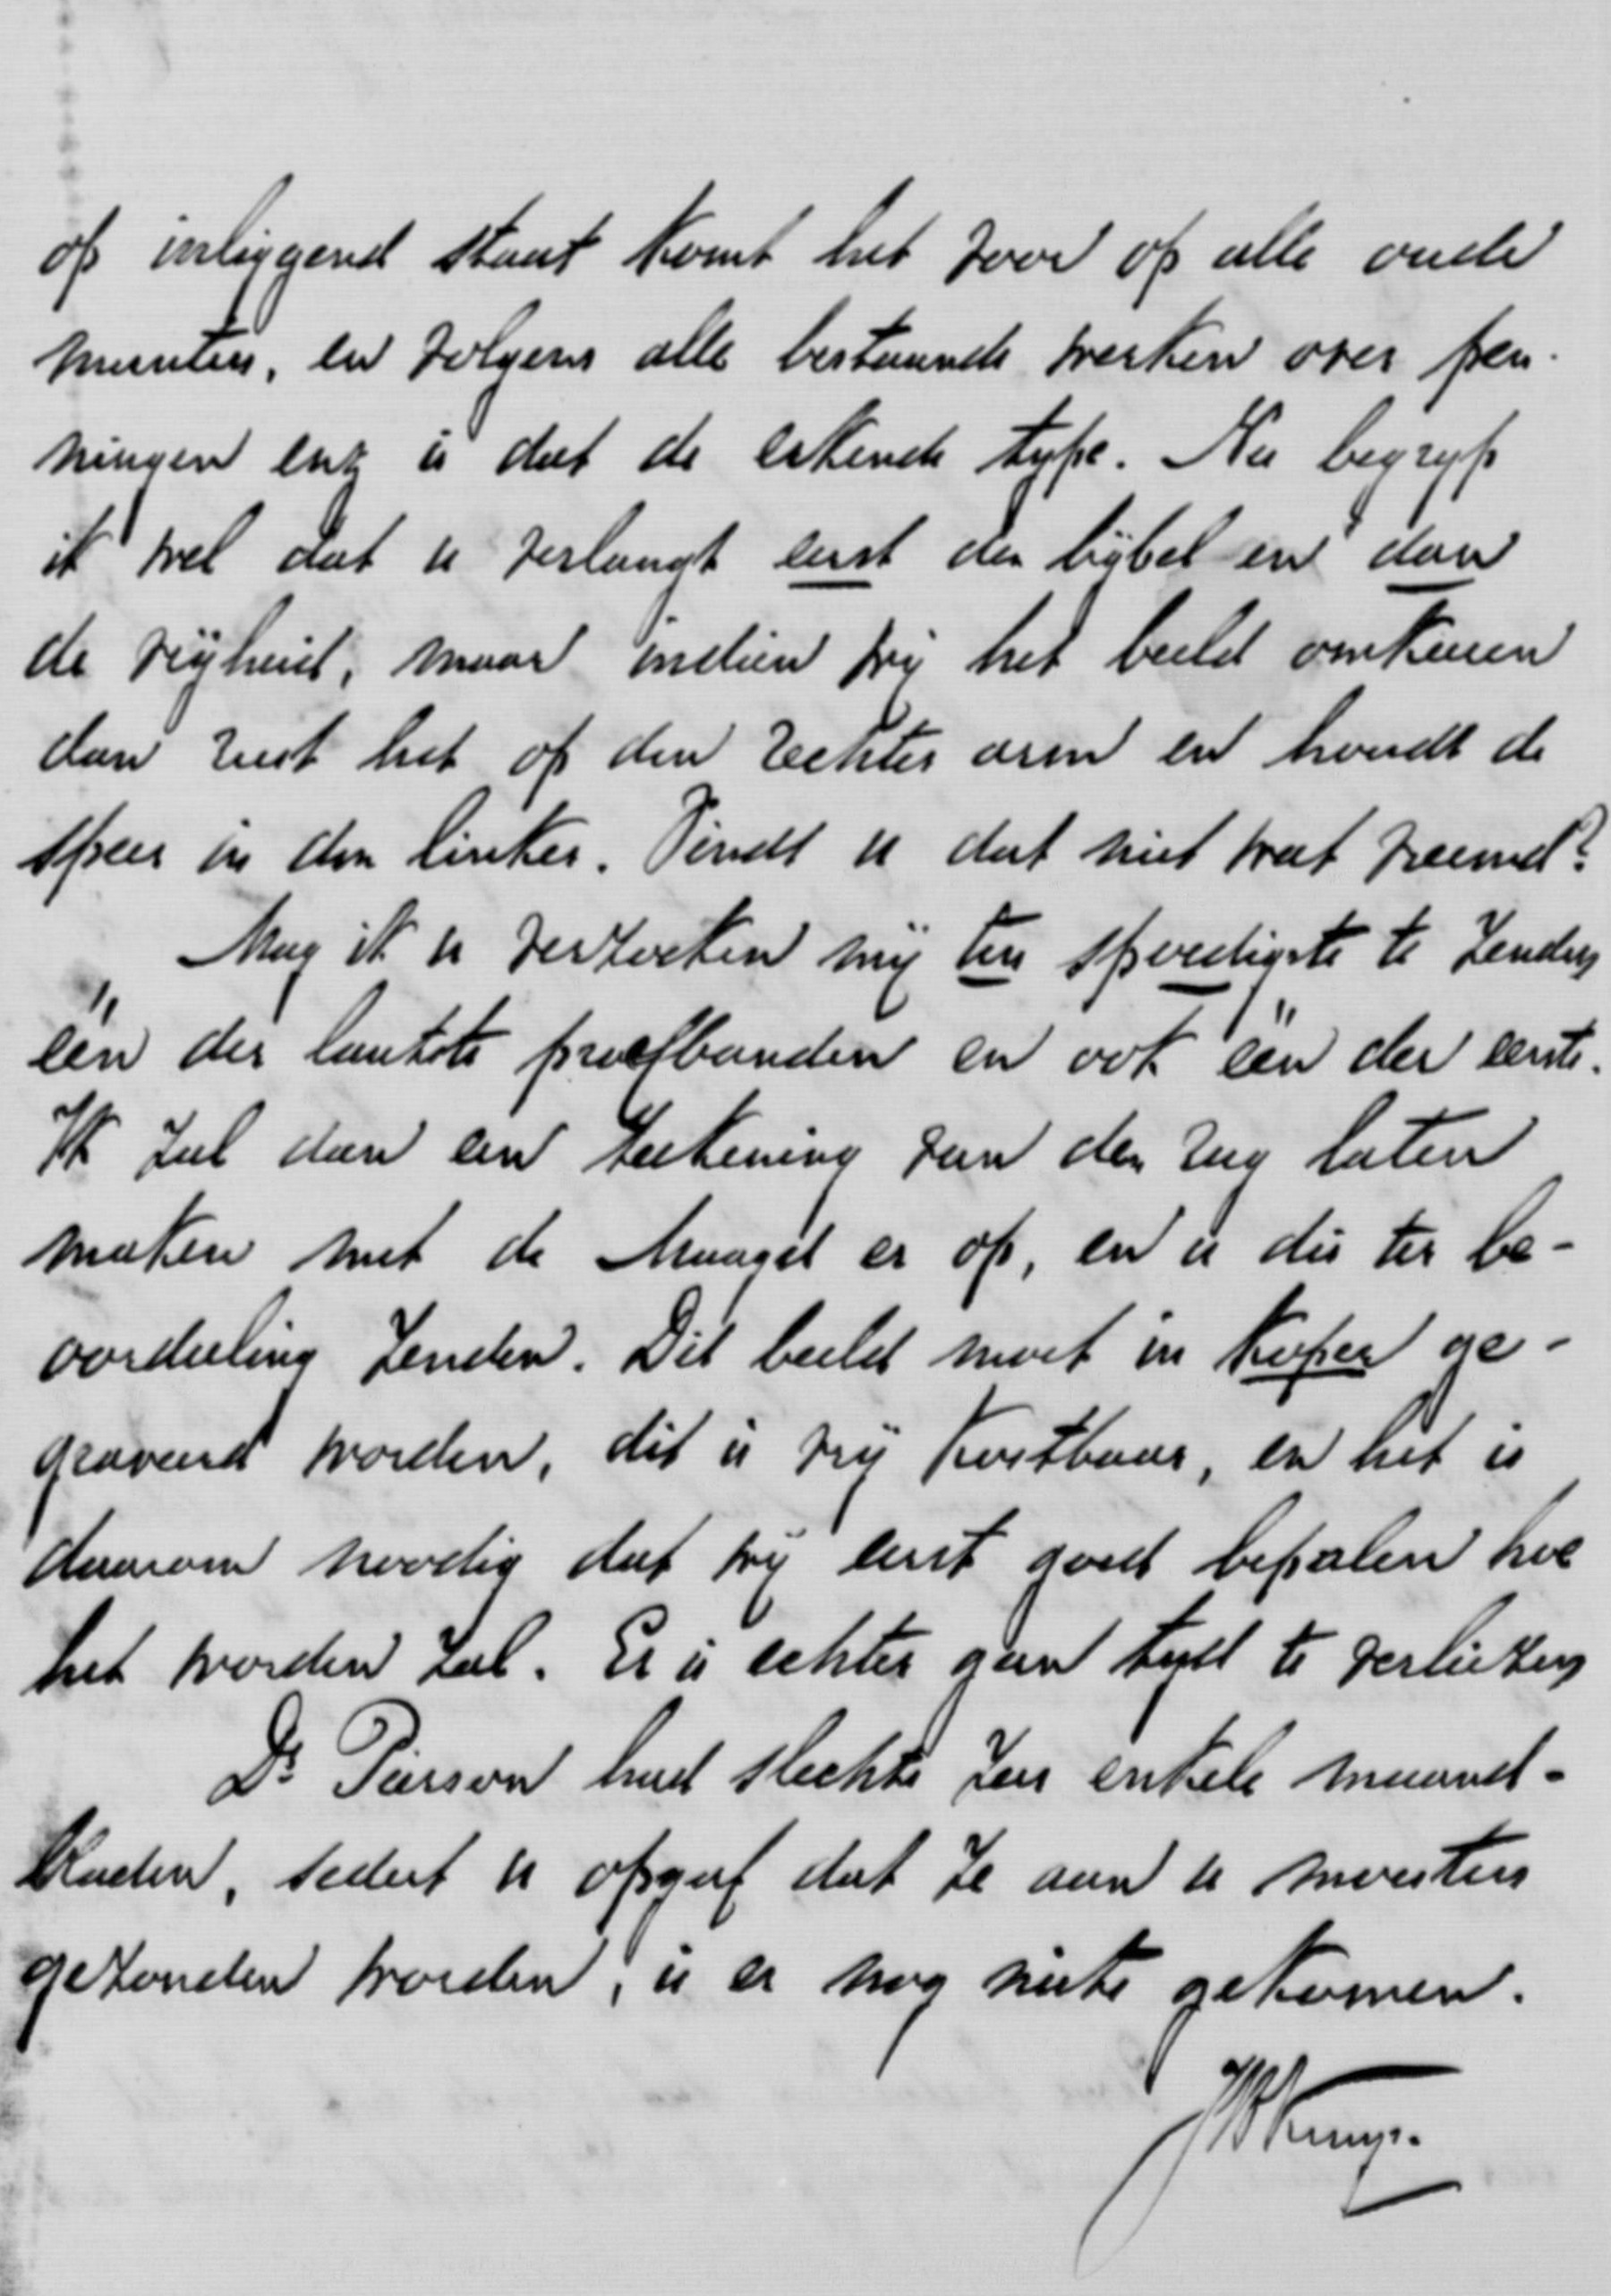 op inliggend staat komt het voor op alle oude
munten, en volgens alle bestaande werken over pen-
ningen enz is dat de erkende type. Nu begryp
ik wel dat u verlangt eerst den bijbel en dan
de vrijheid, maar indien wij het beeld omkeeren
dan rust het op den rechter arm en houdt de
speer in den linker. Vindt u dat niet wat vreemd?
Mag ik u verzoeken mij ten spoedigste te zenden
één der laatste proefbanden en ook één der eerste.
Ik zal dan een teekening van den rug laten
maken met de Maagd er op, en u die ter be-
oordeeling zenden. Dit beeld moet in koper ge-
graveerd worden, dit is vrij kostbaar, en het is
daarom noodig dat wij eerst goed bepalen hoe
het worden zal. Er is echter geen tijd te verliezen
Dr Pierson had slechts zeer enkele maand-
bladen, sedert u opgaf dat ze aan u moesten
gezonden worden, is er nog niets gekomen.